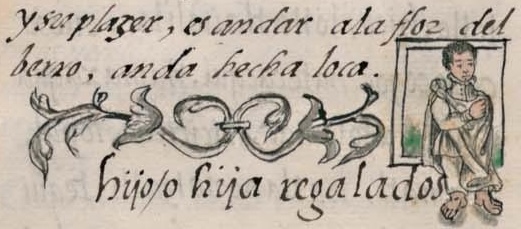 y su plaçer, es andar ala flor del
berro, anda hecha loca.
hijo/o hija regalados